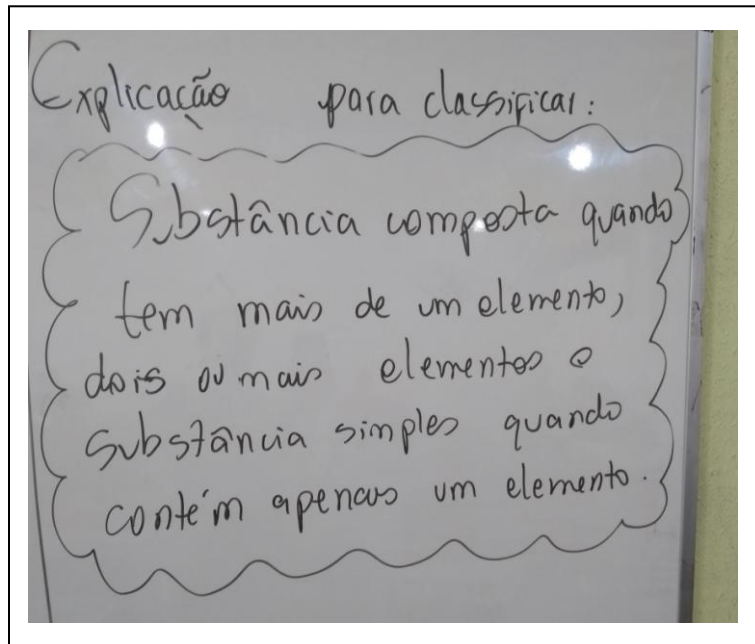 Explicação para classificar:
Substância composta quando
tem mais de um elemento,
dois ou mais elementos e
substância simples quando
contém apenas um elemento.